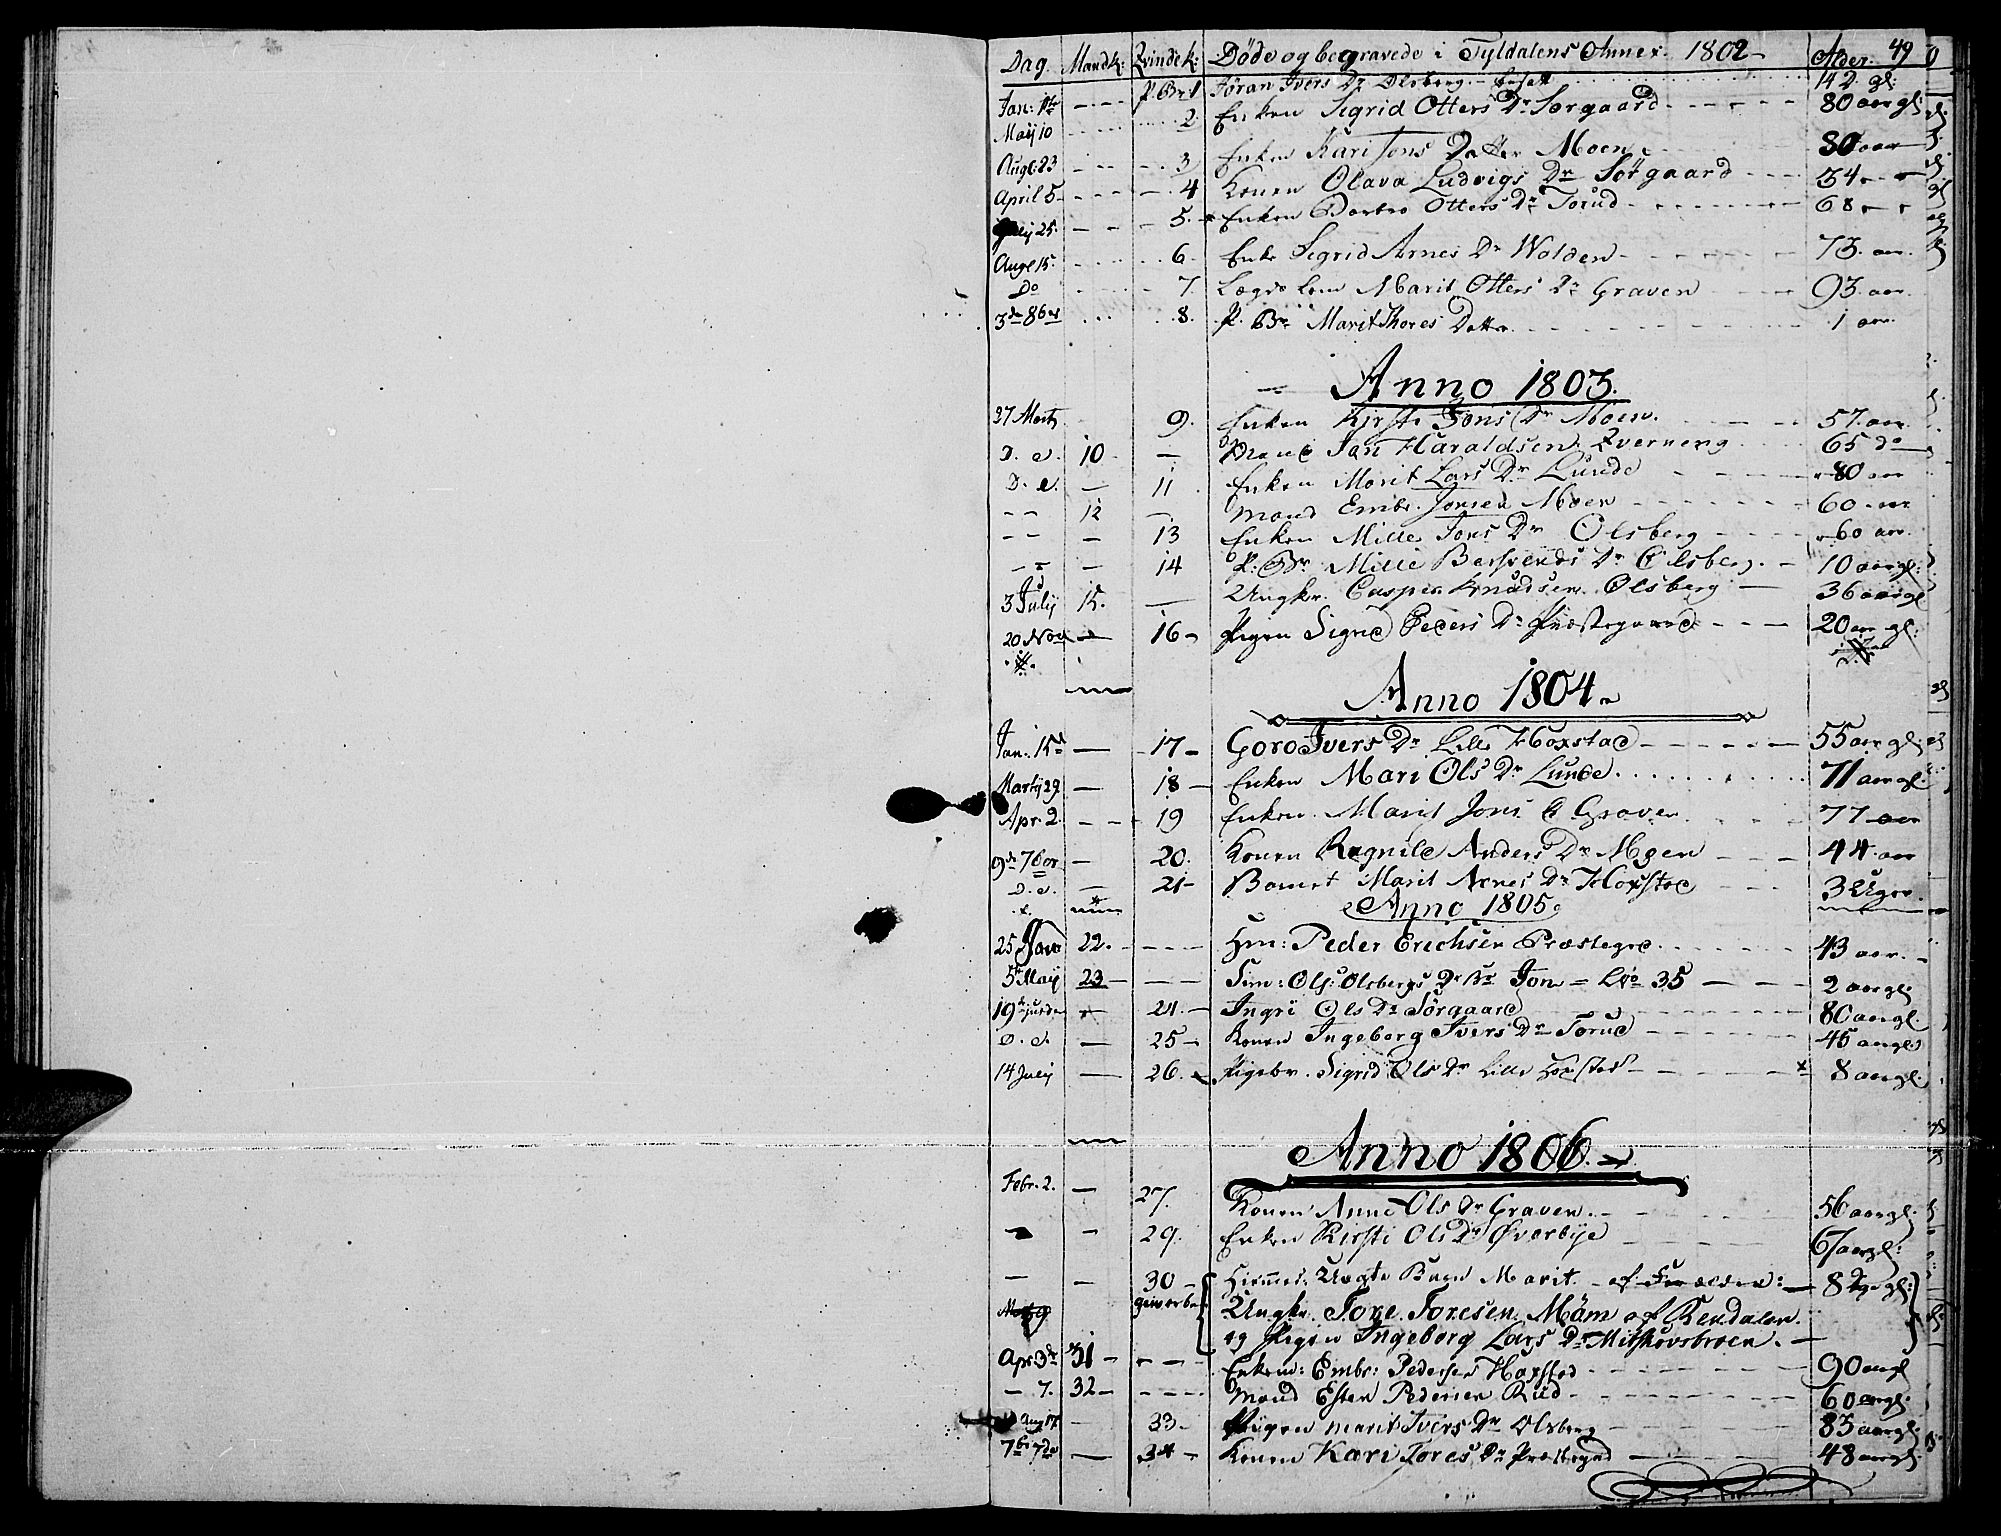 Dag. Mandk: Qvindek: Døde og begravede i Tyldalens Annex 1802 - Alder. 49
P. Br. 1 Jøran Ivers Dr Olsberg 142 gl:
Jan: 1te 2 Enken Sigrid Otters Dr Sørgaard 80 aar gl:
Maij 10
Augt: 23 3 Enken Kari Jons Datter Moen 80 aar
April 5 4 Konen Olava Ludvigs Dr Sørgaard 34
July 25. 5. Enken Barbro Otters Dr Torud 68
Augt 15. 6. Enke Sigrid Arnes Dr Wolden 73. aar.
Do 7. Lægds Lem Marit Otters Dr Graven 93. aar.
3de 8br 8. P. Br Marit Thores Datter 1 aar.
Anno 1803.
27 Marty 9. Enken Kirsti Jons Dr Moen. 57. aar
D. d. 10 — Mand Jan Haraldsen Qverneng 65 do
D. d. — 11 Enken Marit Lars Dr Lunde 80 aar
- - 12 — Mand Embr. Jonsen Moen 60 aar
- - — 13 Enken Mille Jons Dr Olsberg 60 aar.
- - — 14 P: Br Mille Bersvends Dr Olsberg. 10 aar gl:
3 July 15. — Ungkr. Casper Knudsen Olsberg 36 aar gl
20 Nov — 16 - Pigen Signe Peders Dr Præstegaard 20 aar gl:
Anno 1804
Jan. 15d — 17 - Goro Ivers Dr Lille Hoxstad 55 aar gl:
Martij 29. — 18 - Enken Mari Ols Dr Lunde 71 aar gl.
Apr. 2. 19 Enken Marit Jons D Graven 77 aar
9de 7ber — 20. Konen Ragnild Anders Dr Moen 44 aar
D. d. — 21 - Barnet Marit Arnes Dr Hoxstad 3 Uger.
Anno 1805
25 Janr 22. Hm: Peder Erichsen Præstegrd 43 aar.
5te Maij 23 - Sim: Ols: Olsbergs Dr Br Jon = No 35 2 aar gl:
19 24. - Ingri Ols Dr Sørgaard 80 aar gl.
D. d. — 25 - Konen Ingeborg Ivers Dr Torud 45 aar gl:
14 July — 26. Pigebr. Sigrid Ols Dr Lille Hoxstad x 8 aar gl.
Anno 1806.
Febr. 2. — 27. Konen Anne Ols Dr Graven. 56 aar gl:
— 29. Enken Kirsti Ols Dr Øverbye 67 aar gl:
— — 30 - Ungte Barn Marit. 8 Dge gl:
Ungkr. Tore Toresen Møm af Rendalen.
og Pigen Ingeborg Lars Dr
Apr. 3de 31 - Enkem: Embr: Pedersen Hoxstad 90 aar gl
- 7. 32 - Mand Esten Pedersen Rud 60 aar gl:
Aug 17 - 33 - Pigen Marit Ivers Dr Olsberg 83 aar gl:
7br 7de — 34 - Konen Kari Tores Dr Præstegrd 48 aar gl: